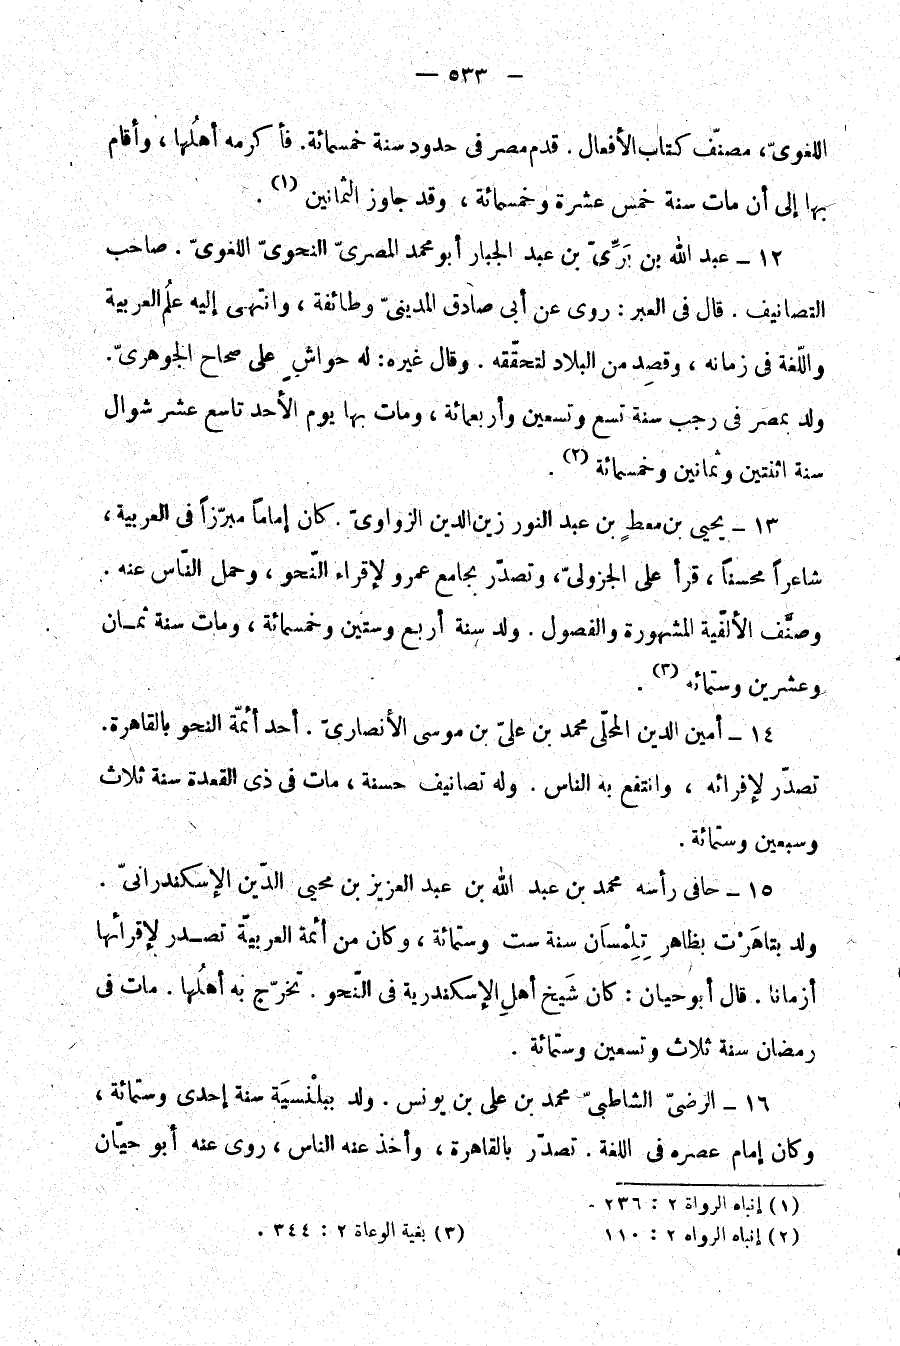 — ٥٣٣ —
اللغوىّ، مصنّف كتاب الأفعال . قدم مصر فى حدود سنة خمسمائة. فأكرمه أهلُها ، وأقام
بها إلى أن مات سنة خمس عشرة وخمسمائة ، وقد جاوز الثمانين (١) .
١٢ ــ عبد الله بن بَرِّىّ بن عبد الجبار أبو محمد المصرىّ النحوىّ اللغوىّ . صاحب
التصانيف . قال فى العبر : روى عن أبى صادق المدينىّ وطائفة ، وانتهى إليه علمُ العربية
واللّغة فى زمانه ، وقصِد من البلاد لتحقّقه . وقال غيره: له حواشٍ على صحاح الجوهرىّ.
ولد بمصر فى رجب سنة تسع وتسعين وأربعمائة ، ومات بها يوم الأحد تاسع عشر شوال
سنة اثنتين وثمانين وخمسمائة (٢) .
١٣ ــ يحيى بن معطٍ بن عبد النور زين الدين الزواوىّ . كان إماماً مبرّزاً فى العربية ،
شاعراً محسناً ، قرأ على الجزولىّ، وتصدّر بجامع عمرو لإقراء النّحو ، وحمل النّاس عنه .
وصنَّف الألفّية المشهورة والفصول . ولد سنة أربع وستين وخمسمائة ، ومات سنة ثمـان
وعشرين وستمائه (٣) .
١٤ ــ أمين الدين المحلّى محمد بن علىّ بن موسى الأنصارىّ . أحد أئمّة النحو بالقاهرة.
تصدّر لإقرائه ، وانتفع به الناس . وله تصانيف حسنة ، مات فى ذى القعدة سنة ثلاث
وسبعين وستمائة .
١٥ ــ حافى رأسه محمد بن عبد الله بن عبد العزيز بن محيى الدّين الإسكندرانىّ .
ولد بتاهَرْت بظاهر تِلِمْسَان سنة ست وستمائة ، وكان من أئمة العربيّة تصـدر لإقرائها
أزمانا . قال أبو حيان : كان شَيخ أهلِ الإسكندرية فى النّحو . تخرّج به أهلُها . مات فى
رمضان سنة ثلاث وتسعين وستمائة .
١٦ ــ الرضىّ الشاطبىّ محمد بن على بن يونس . ولد ببلْنسيَة سنة إحدى وستمائة ،
وكان إمام عصره فى اللغة . تصدّر بالقاهرة ، وأخذ عنه الناس ، روى عنه أبو حيّان
(١) إنباه الرواة ٢ : ٢٣٦ .
(٢) إنباه الرواه ٢ : ١١٠ (٣) بغية الوعاة ٢ : ٣٤٤ .